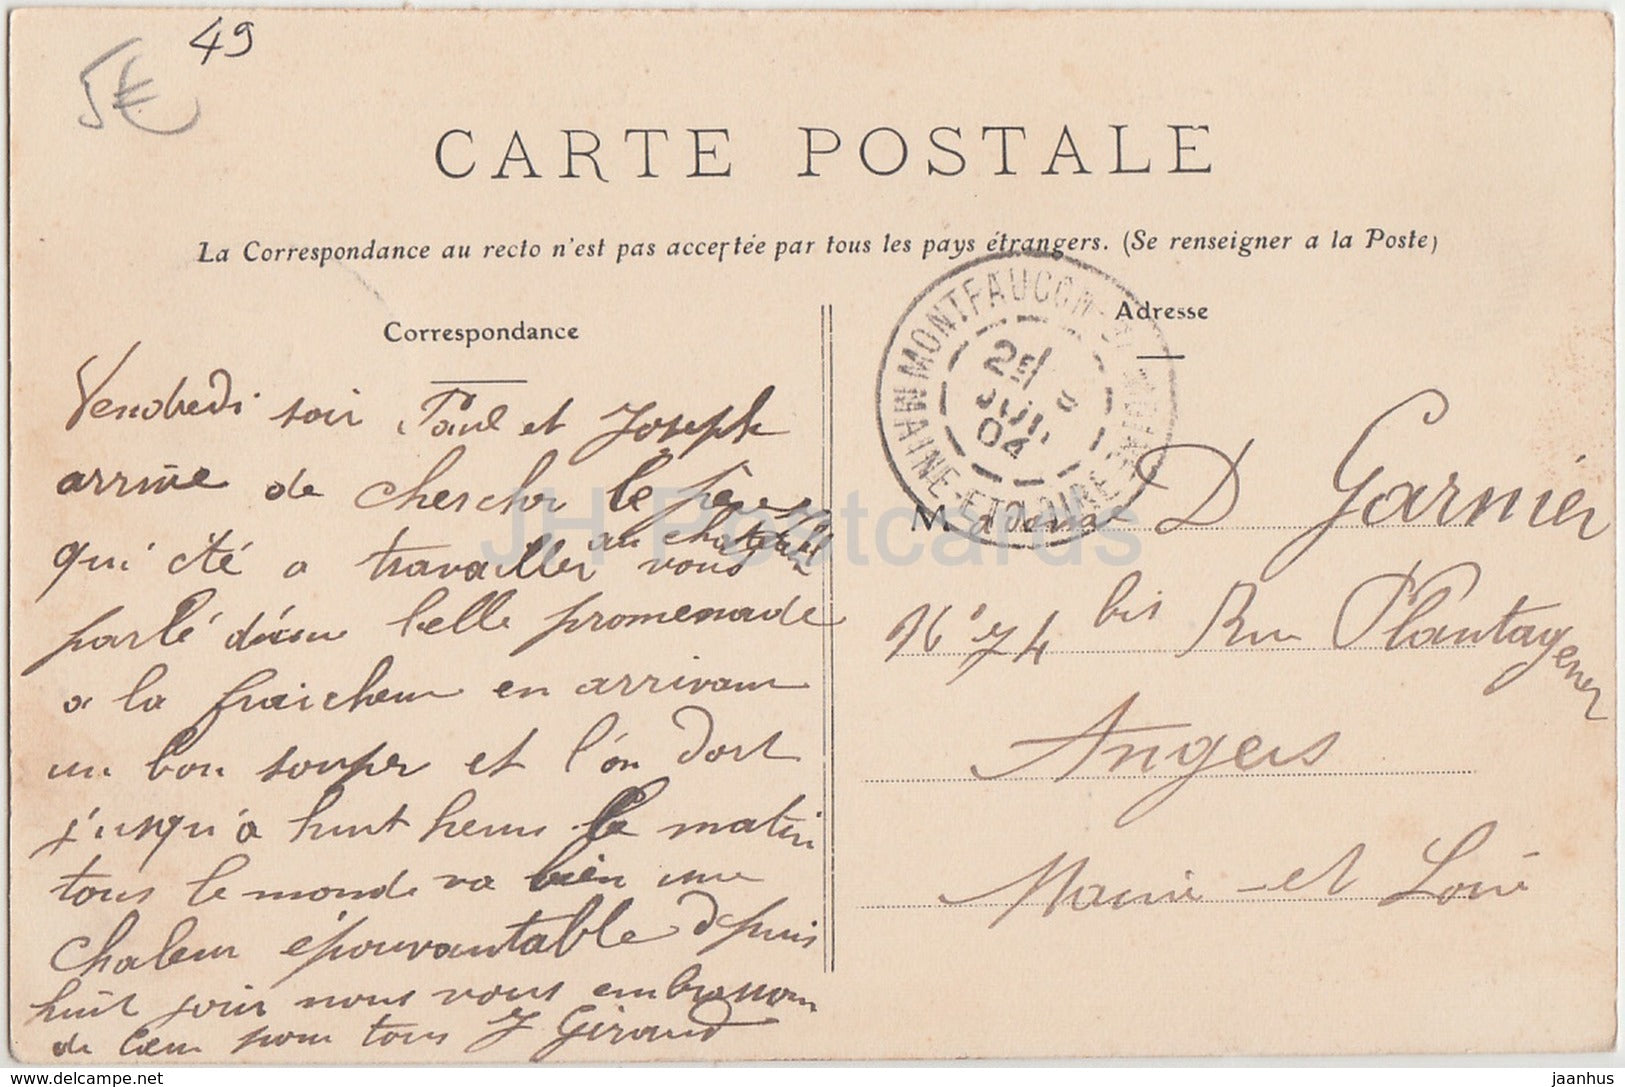 5€ 49
CARTE POSTALE
La Correspondance au recto n'est pas acceptée par tous les pays étrangers. (Se renseigner a la Poste)
Correspondance
Vendredi soir Paul et Joseph
arrive de chercher le père
au
qui été a travailler vous
parlé d'une belle promenade
a la fraicheur en arrivant
un bon souper et l'on dort
j'usqu'a huit heure le matin
tous le monde va bien une
chaleur épouvantable depuis
huit jour nous vous embrassons
de cœur pour tous J Giraud
MONTFAUCON
MAINE-ET-LOIRE
25
JUIL
04
Adresse
Madame D Garnier
N° 74 bis Rue Plantagenet
Angers
Maine-et Loire
JH Postcards
delcampe.net
jaanhus